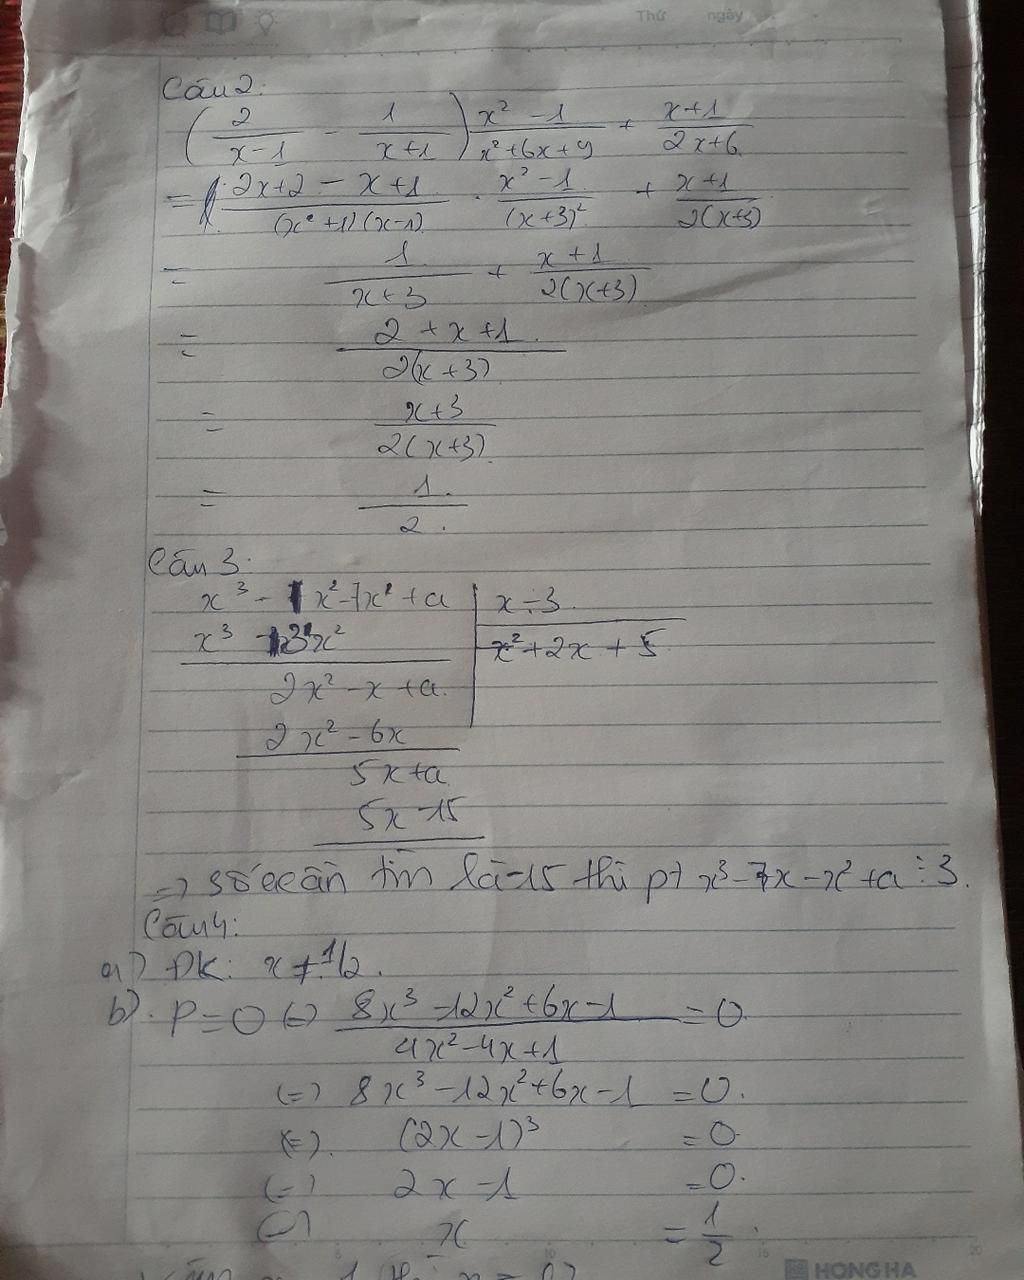 Thứ ngày
Câu 2:
(2/(x-1) - 1/(x+1)) (x² - 1)/(x²+6x+9) + (x+1)/(2x+6)
= (2x+2 - x+1)/((x+1)(x-1)) . (x² - 1)/(x+3)² + (x+1)/(2(x+3))
= 1/(x+3) + (x+1)/(2(x+3))
= (2+x+1)/(2(x+3))
= (x+3)/(2(x+3))
= 1/2.
Câu 3:
x³ - 1x² - 7x² + a | x - 3
x³ - 3x² | x² + 2x + 5
2x² - x + a
2x² - 6x
5x + a
5x - 15
=> số cần tìm là -15 thì pt x³ - 7x - x² + a ⋮ 3.
Câu 4:
a) ĐK: x ≠ 1/2.
b). P = 0 (=) (8x³ - 12x² + 6x - 1)/(4x² - 4x + 1) = 0
(=) 8x³ - 12x² + 6x - 1 = 0.
(=). (2x - 1)³ = 0
(=) 2x - 1 = 0.
(=) x = 1/2.
HONG HA